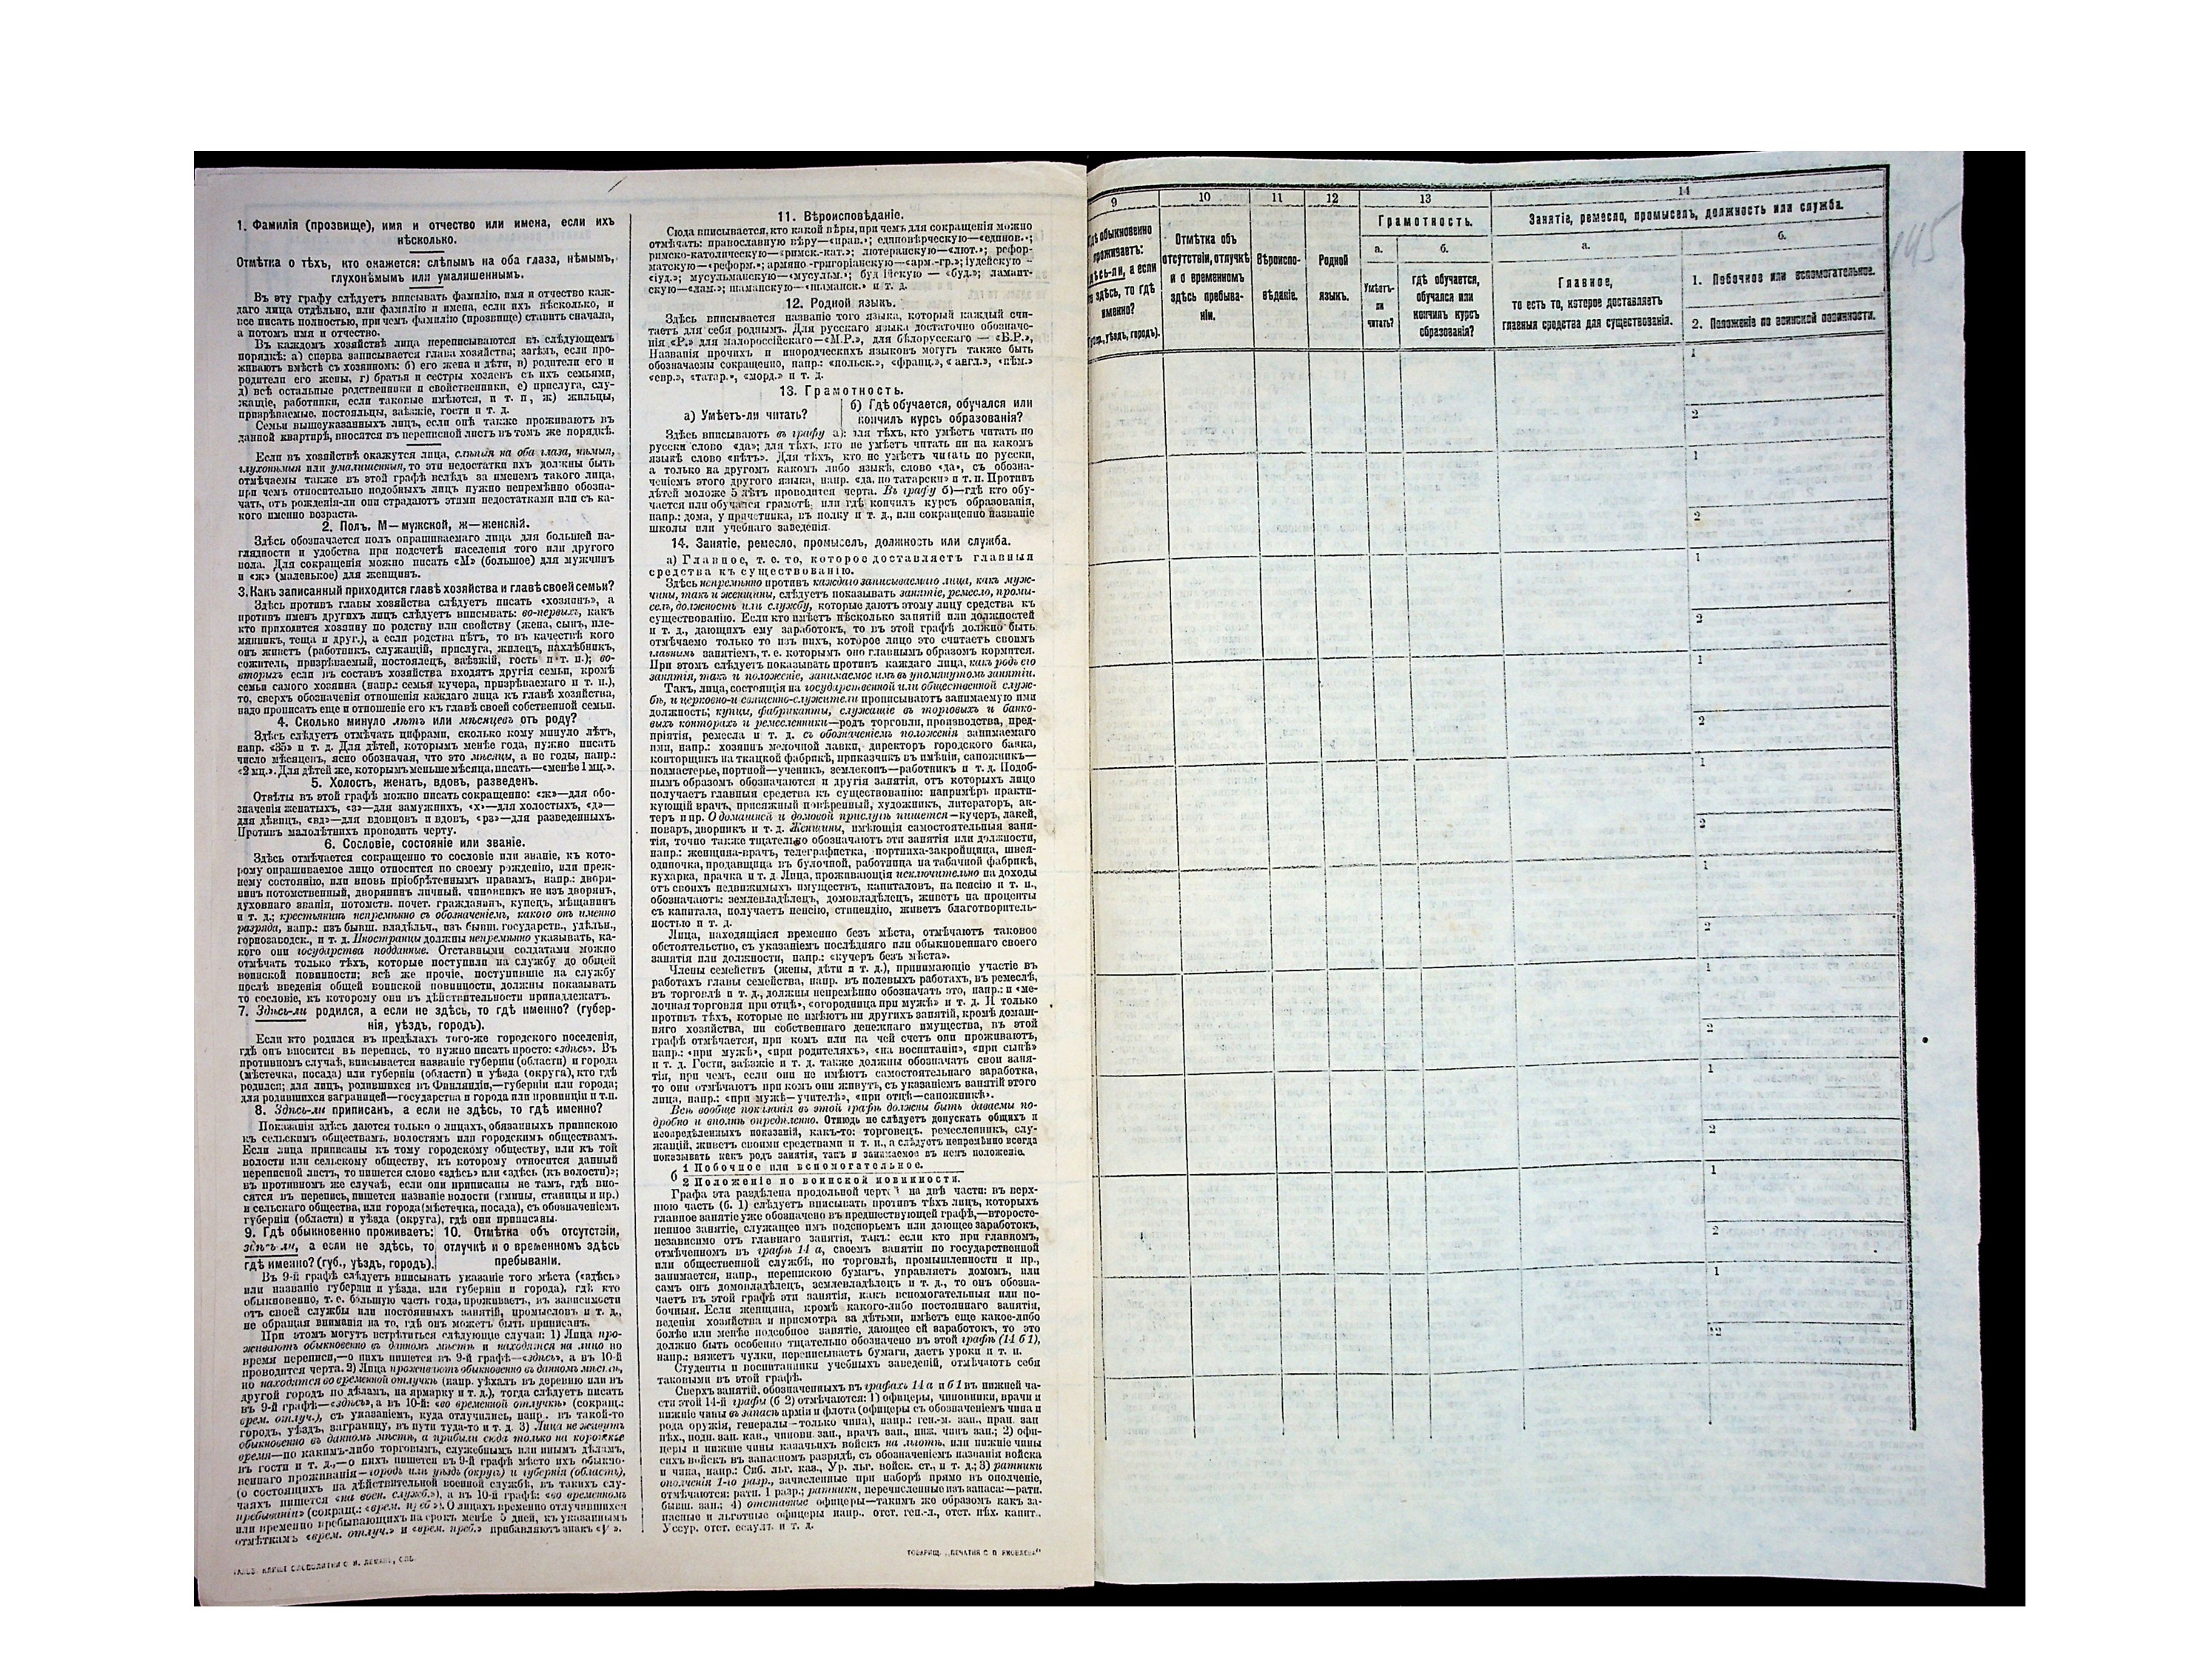 1. Фамилія (прозвище), имя и отчество или имена, если ихъ
нѣсколько.
Отмѣтка о тѣхъ, кто окажется: слѣпымъ на оба глаза, нѣмымъ,
глухонѣмымъ или умалишеннымъ.
Въ эту графу слѣдуетъ вписывать фамилію, имя и отчество каж-
даго лица отдѣльно, или фамилію и имена, если ихъ нѣсколько, и
все писать полностью, при чемъ фамилію (прозвище) ставить сначала,
а потомъ имя и отчество.
Въ каждомъ хозяйствѣ лица переписываются въ слѣдующемъ
порядкѣ: а) сперва записывается глава хозяйства; затѣмъ, если про-
живаютъ вмѣстѣ съ хозяиномъ: б) его жена и дѣти, в) родители его и
родители его жены, г) братья и сестры хозяевъ съ ихъ семьями,
д) всѣ остальные родственники и свойственники, е) прислуга, слу-
жащіе, работники, если таковые имѣются, и т. п., ж) жильцы,
призрѣваемые, постояльцы, заѣзжіе, гости и т. д.
Семьи вышеуказанныхъ лицъ, если онѣ также проживаютъ въ
данной квартирѣ, вносятся въ переписной листъ въ томъ же порядкѣ.
Если въ хозяйствѣ окажутся лица, слѣпыя на оба глаза, нѣмыя,
глухонѣмыя или умалишенныя, то эти недостатки ихъ должны быть
отмѣчаемы также въ этой графѣ вслѣдъ за именемъ такого лица,
при чемъ относительно подобныхъ лицъ нужно непремѣнно обозна-
чать, отъ рожденія-ли они страдаютъ этими недостатками или съ ка-
кого именно возраста.
2. Полъ. М—мужской, ж—женскій.
Здѣсь обозначается полъ опрашиваемаго лица для большей на-
глядности и удобства при подсчетѣ населенія того или другого
пола. Для сокращенія можно писать «М» (большое) для мужчинъ
и «ж» (маленькое) для женщинъ.
3. Какъ записанный приходится главѣ хозяйства и главѣ своей семьи?
Здѣсь противъ главы хозяйства слѣдуетъ писать «хозяинъ», а
противъ именъ другихъ лицъ слѣдуетъ вписывать: во-первыхъ, какъ
кто приходится хозяину по родству или свойству (жена, сынъ, пле-
мянникъ, теща и друг.), а если родства нѣтъ, то въ качествѣ кого
онъ живетъ (работникъ, служащій, прислуга, жилецъ, нахлѣбникъ,
сожитель, призрѣваемый, постоялецъ, заѣзжій, гость и т. п.); во-
вторыхъ если въ составъ хозяйства входятъ другія семьи, кромѣ
семьи самого хозяина (напр.: семья кучера, призрѣваемаго и т. п.),
то, сверхъ обозначенія отношенія каждаго лица къ главѣ хозяйства,
надо прописать еще и отношеніе его къ главѣ своей собственной семьи.
4. Сколько минуло лѣтъ или мѣсяцевъ отъ роду?
Здѣсь слѣдуетъ отмѣчать цифрами, сколько кому минуло лѣтъ,
напр. «35» и т. д. Для дѣтей, которымъ менѣе года, нужно писать
число мѣсяцевъ, ясно обозначая, что это мѣсяцы, а не годы, напр.:
«2 мц.». Для дѣтей же, которымъ меньше мѣсяца, писать—«менѣе 1 мц.».
5. Холостъ, женатъ, вдовъ, разведенъ.
Отвѣты въ этой графѣ можно писать сокращенно: «ж»—для обо-
значенія женатыхъ, «з»—для замужнихъ, «х»—для холостыхъ, «д»—
для дѣвицъ, «вд»—для вдовцовъ и вдовъ, «рз»—для разведенныхъ.
Противъ малолѣтнихъ проводить черту.
6. Сословіе, состояніе или званіе.
Здѣсь отмѣчается сокращенно то сословіе или званіе, къ кото-
рому опрашиваемое лицо относится по своему рожденію, или преж-
нему состоянію, или вновь пріобрѣтеннымъ правамъ, напр.: дворя-
нинъ потомственный, дворянинъ личный, чиновникъ не изъ дворянъ,
духовнаго званія, потомств. почет. гражданинъ, купецъ, мѣщанинъ
и т. д.; крестьянинъ непремѣнно съ обозначеніемъ, какого онъ именно
разряда, напр.: изъ бывш. владѣльч., изъ бывш. государств., удѣльн.,
горнозаводск., и т. д. Иностранцы должны непремѣнно указывать, ка-
кого они государства подданные. Отставными солдатами можно
отмѣчать только тѣхъ, которые поступили на службу до общей
воинской повинности; всѣ же прочіе, поступившіе на службу
послѣ введенія общей воинской повинности, должны показывать
то сословіе, къ которому они въ дѣйствительности принадлежатъ.
7. Здѣсь-ли родился, а если не здѣсь, то гдѣ именно? (губер-
нія, уѣздъ, городъ).
Если кто родился въ предѣлахъ того-же городского поселенія,
гдѣ онъ вносится въ перепись, то нужно писать просто: «здѣсь». Въ
противномъ случаѣ, вписывается названіе губерніи (области) и города
(мѣстечка, посада) или губерніи (области) и уѣзда (округа), кто гдѣ
родился; для лицъ, родившихся въ Финляндіи,—губерніи или города;
для родившихся заграницей—государства и города или провинціи и т.п.
8. Здѣсь-ли приписанъ, а если не здѣсь, то гдѣ именно?
Показанія здѣсь даются только о лицахъ, обязанныхъ припискою
къ сельскимъ обществамъ, волостямъ или городскимъ обществамъ.
Если лица приписаны къ тому городскому обществу, или къ той
волости или сельскому обществу, къ которому относится данный
переписной листъ, то пишется слово «здѣсь» или «здѣсь (къ волости)»;
въ противномъ же случаѣ, если они приписаны не тамъ, гдѣ вно-
сятся въ перепись, пишется названіе волости (гмины, станицы и пр.)
и сельскаго общества, или города (мѣстечка, посада), съ обозначеніемъ
губерніи (области) и уѣзда (округа), гдѣ они приписаны.
9. Гдѣ обыкновенно проживаетъ:
здѣсь-ли, а если не здѣсь, то
гдѣ именно? (губ., уѣздъ, городъ).
10. Отмѣтка объ отсутствіи,
отлучкѣ и о временномъ здѣсь
пребываніи.
Въ 9-й графѣ слѣдуетъ вписывать указаніе того мѣста («здѣсь»
или названіе губерніи и уѣзда, или губерніи и города), гдѣ кто
обыкновенно, т. е. большую часть года, проживаетъ, въ зависимости
отъ своей службы или постоянныхъ занятій, промысловъ и т. д.,
не обращая вниманія на то, гдѣ онъ можетъ быть приписанъ.
При этомъ могутъ встрѣтиться слѣдующіе случаи: 1) Лица про-
живаютъ обыкновенно въ данномъ мѣстѣ и находятся на лицо во
время переписи,—о нихъ пишется въ 9-й графѣ—«здѣсь», а въ 10-й
проводится черта. 2) Лица проживаютъ обыкновенно въ данномъ мѣстѣ,
но находятся во временной отлучкѣ (напр. уѣхалъ въ деревню или въ
другой городъ по дѣламъ, на ярмарку и т. д.), тогда слѣдуетъ писать
въ 9-й графѣ—«здѣсь», а въ 10-й: «во временной отлучкѣ» (сокращ.:
врем. отлуч.), съ указаніемъ, куда отлучились, напр. въ такой-то
городъ, уѣздъ, заграницу, въ пути туда-то и т. д. 3) Лица не живутъ
обыкновенно въ данномъ мѣстѣ, а прибыли сюда только на короткое
время—по какимъ-либо торговымъ, служебнымъ или инымъ дѣламъ,
въ гости и т. д.,—о нихъ пишется въ 9-й графѣ мѣсто ихъ обыкно-
веннаго проживанія—городъ или уѣздъ (округъ) и губернія (область),
(о состоящихъ на дѣйствительной военной службѣ, въ такихъ слу-
чаяхъ пишется «на воен. служб.»), а въ 10-й графѣ: «во временномъ
пребываніи» (сокращ.: «врем. преб»). О лицахъ временно отлучившихся
или временно пребывающихъ на срокъ менѣе 5 дней, къ указаннымъ
отмѣткамъ «врем. отлуч.» и «врем. преб.» прибавляютъ знакъ «V».
11. Вѣроисповѣданіе.
Сюда вписывается, кто какой вѣры, при чемъ для сокращенія можно
отмѣчать: православную вѣру—«прав.»; единовѣрческую—«единов.»;
римско-католическую—«римск.-кат.»; лютеранскую—«лют.»; рефор-
матскую—«реформ.»; армяно-григоріанскую—«арм.-гр.»; іудейскую —
«іуд.»; мусульманскую—«мусульм.»; буддійскую — «буд.»; ламаит-
скую—«лам.»; шаманскую—«шаманск.» и т. д.
12. Родной языкъ.
Здѣсь вписывается названіе того языка, который каждый счи-
таетъ для себя роднымъ. Для русскаго языка достаточно обозначе-
нія «Р.» для малороссійскаго—«М.Р.», для бѣлорусскаго — «Б.Р.»,
Названія прочихъ и инородческихъ языковъ могутъ также быть
обозначаемы сокращенно, напр.: «польск.», «франц.», «англ.», «нѣм.»
«евр.», «татар.», «морд.» и т. д.
13. Грамотность.
а) Умѣетъ-ли читать?
б) Гдѣ обучается, обучался или
кончилъ курсъ образованія?
Здѣсь вписываютъ въ графу а): для тѣхъ, кто умѣетъ читать по
русски слово «да»; для тѣхъ, кто не умѣетъ читать ни на какомъ
языкѣ слово «нѣтъ». Для тѣхъ, кто не умѣетъ читать по русски,
а только на другомъ какомъ либо языкѣ, слово «да», съ обозна-
ченіемъ этого другого языка, напр. «да, по татарски» и т. п. Противъ
дѣтей моложе 5 лѣтъ проводится черта. Въ графу б)—гдѣ кто обу-
чается или обучался грамотѣ, или гдѣ кончилъ курсъ образованія,
напр.: дома, у причетника, въ полку и т. д., или сокращенно названіе
школы или учебнаго заведенія.
14. Занятіе, ремесло, промыселъ, должность или служба.
а) Главное, т. е. то, которое доставляетъ главныя
средства къ существованію.
Здѣсь непремѣнно противъ каждаго записываемаго лица, какъ муж-
чины, такъ и женщины, слѣдуетъ показывать занятіе, ремесло, промы-
селъ, должность или службу, которые даютъ этому лицу средства къ
существованію. Если кто имѣетъ нѣсколько занятій или должностей
и т. д., дающихъ ему заработокъ, то въ этой графѣ должно быть
отмѣчаемо только то изъ нихъ, которое лицо это считаетъ своимъ
главнымъ занятіемъ, т. е. которымъ оно главнымъ образомъ кормится.
При этомъ слѣдуетъ показывать противъ каждаго лица, какъ родъ его
занятія, такъ и положеніе, занимаемое имъ въ упомянутомъ занятіи.
Такъ, лица, состоящія на государственной или общественной служ-
бѣ, и церковно-и священно-служители прописываютъ занимаемую ими
должность; купцы, фабриканты, служащіе въ торговыхъ и банко-
выхъ конторахъ и ремесленники—родъ торговли, производства, пред-
пріятія, ремесла и т. д. съ обозначеніемъ положенія занимаемаго
ими, напр.: хозяинъ мелочной лавки, директоръ городского банка,
конторщикъ на ткацкой фабрикѣ, приказчикъ въ имѣніи, сапожникъ—
подмастерье, портной—ученикъ, землекопъ—работникъ и т. д. Подоб-
нымъ образомъ обозначаются и другія занятія, отъ которыхъ лицо
получаетъ главныя средства къ существованію: напримѣръ практи-
кующій врачъ, присяжный повѣренный, художникъ, литераторъ, ак-
теръ и пр. О домашней и домовой прислугѣ пишется—кучеръ, лакей,
поваръ, дворникъ и т. д. Женщины, имѣющія самостоятельныя заня-
тія, точно также тщательно обозначаютъ эти занятія или должности,
напр.: женщина-врачъ, телеграфистка, портниха-закройщица, швея-
одиночка, продавщица въ булочной, работница на табачной фабрикѣ,
кухарка, прачка и т. д Лица, проживающія исключительно на доходы
отъ своихъ недвижимыхъ имуществъ, капиталовъ, на пенсію и т. п.,
обозначаютъ: землевладѣлецъ, домовладѣлецъ, живетъ на проценты
съ капитала, получаетъ пенсію, стипендію, живетъ благотворитель-
ностью и т. д.
Лица, находящіяся временно безъ мѣста, отмѣчаютъ таковое
обстоятельство, съ указаніемъ послѣдняго или обыкновеннаго своего
занятія или должности, напр.: «кучеръ безъ мѣста».
Члены семействъ (жены, дѣти и т. д.), принимающіе участіе въ
работахъ главы семейства, напр. въ полевыхъ работахъ, въ ремеслѣ,
въ торговлѣ и т. д., должны непремѣнно обозначать это, напр.: п «ме-
лочная торговля при отцѣ», «огородница при мужѣ» и т. д. И только
противъ тѣхъ, которые не имѣютъ ни другихъ занятій, кромѣ домаш-
няго хозяйства, ни собственнаго денежнаго имущества, въ этой
графѣ отмѣчается, при комъ или на чей счетъ они проживаютъ,
напр.: «при мужѣ», «при родителяхъ», «на воспитаніи», «при сынѣ»
и т. д. Гости, заѣзжіе и т. д. также должны обозначать свои заня-
тія, при чемъ, если они не имѣютъ самостоятельнаго заработка,
то они отмѣчаютъ при комъ они живутъ, съ указаніемъ занятій этого
лица, напр.: «при мужѣ—учителѣ», «при отцѣ—сапожникѣ».
Всѣ вообще показанія въ этой графѣ должны быть даваемы по-
дробно и вполнѣ опредѣленно. Отнюдь не слѣдуетъ допускать общихъ и
неопредѣленныхъ показаній, какъ-то: торговецъ, ремесленникъ, слу-
жащій, живетъ своими средствами и т. п., а слѣдуетъ непремѣнно всегда
показывать какъ родъ занятія, такъ и занимаемое въ немъ положеніе.
б
1 Побочное или вспомогательное.
2 Положеніе по воинской повинности.
Графа эта раздѣлена продольной чертой на двѣ части: въ верх-
нюю часть (б. 1) слѣдуетъ вписывать противъ тѣхъ лицъ, которыхъ
главное занятіе уже обозначено въ предшествующей графѣ,—второсте-
пенное занятіе, служащее имъ подспорьемъ или дающее заработокъ,
независимо отъ главнаго занятія, такъ: если кто при главномъ,
отмѣченномъ въ графѣ 14 а, своемъ занятіи по государственной
или общественной службѣ, по торговлѣ, промышленности и пр.,
занимается, напр., перепискою бумагъ, управляетъ домомъ, или
самъ онъ домовладѣлецъ, землевладѣлецъ и т. д., то онъ обозна-
чаетъ въ этой графѣ эти занятія, какъ вспомогательныя или по-
бочныя. Если женщина, кромѣ какого-либо постояннаго занятія,
веденія хозяйства и присмотра за дѣтьми, имѣетъ еще какое-либо
болѣе или менѣе подсобное занятіе, дающее ей заработокъ, то это
должно быть особенно тщательно обозначено въ этой графѣ (14 б 1),
напр.: вяжетъ чулки, переписываетъ бумаги, даетъ уроки и т. п.
Студенты и воспитанники учебныхъ заведеній, отмѣчаютъ себя
таковыми въ этой графѣ.
Сверхъ занятій, обозначенныхъ въ графахъ 14 а и б 1 въ нижней ча-
сти этой 14-й графы (б 2) отмѣчаются: 1) офицеры, чиновники, врачи и
нижніе чины въ запасѣ арміи и флота (офицеры съ обозначеніемъ чина и
рода оружія, генералы—только чина), напр.: ген.-м. зап., прап. зап
пѣх., подп. зап. кав., чиновн. зап., врачъ зап., ниж. чин. зап.; 2) офи-
церы и нижніе чины казачьихъ войскъ на льготѣ, или нижніе чины
сихъ войскъ въ запасномъ разрядѣ, съ обозначеніемъ названія войска
и чина, напр.: Сиб. льг. каз., Ур. льг. войск. ст., и т. д.; 3) ратники
ополченія 1-го разр., зачисленные при наборѣ прямо въ ополченіе,
отмѣчаются: ратн. 1 разр.; ратники, перечисленные изъ запаса:—ратн.
бывш. зап.; 4) отставные офицеры—такимъ же образомъ какъ за-
пасные и льготные офицеры напр.. отст. ген.-л., отст. пѣх. капит..
Уссур. отст. есаулъ и т. д.
ТОВАРИЩ. „ПЕЧАТНЯ С. П. ЯКОВЛЕВА“
145
9
обыкновенно
проживаетъ:
а если
здѣсь, то гдѣ
именно?
уѣздъ, городъ).
10
Отмѣтка объ
отсутствіи, отлучкѣ
и о временномъ
здѣсь пребыва-
ніи.
11
Вѣроиспо-
вѣданіе.
12
Родной
языкъ.
13
Грамотность.
а.
Умѣетъ-
ли
читать?
б.
Гдѣ обучается,
обучался или
кончилъ курсъ
образованія?
14
Занятіе, ремесло, промыселъ, должность или служба.
а.
Главное,
то есть то, которое доставляетъ
главныя средства для существованія.
б.
1. Побочное или вспомогательное.
2. Положеніе по воинской повинности.
1
2
1
2
1
2
1
2
1
2
1
2
1
2
1
2
1
2
1
2